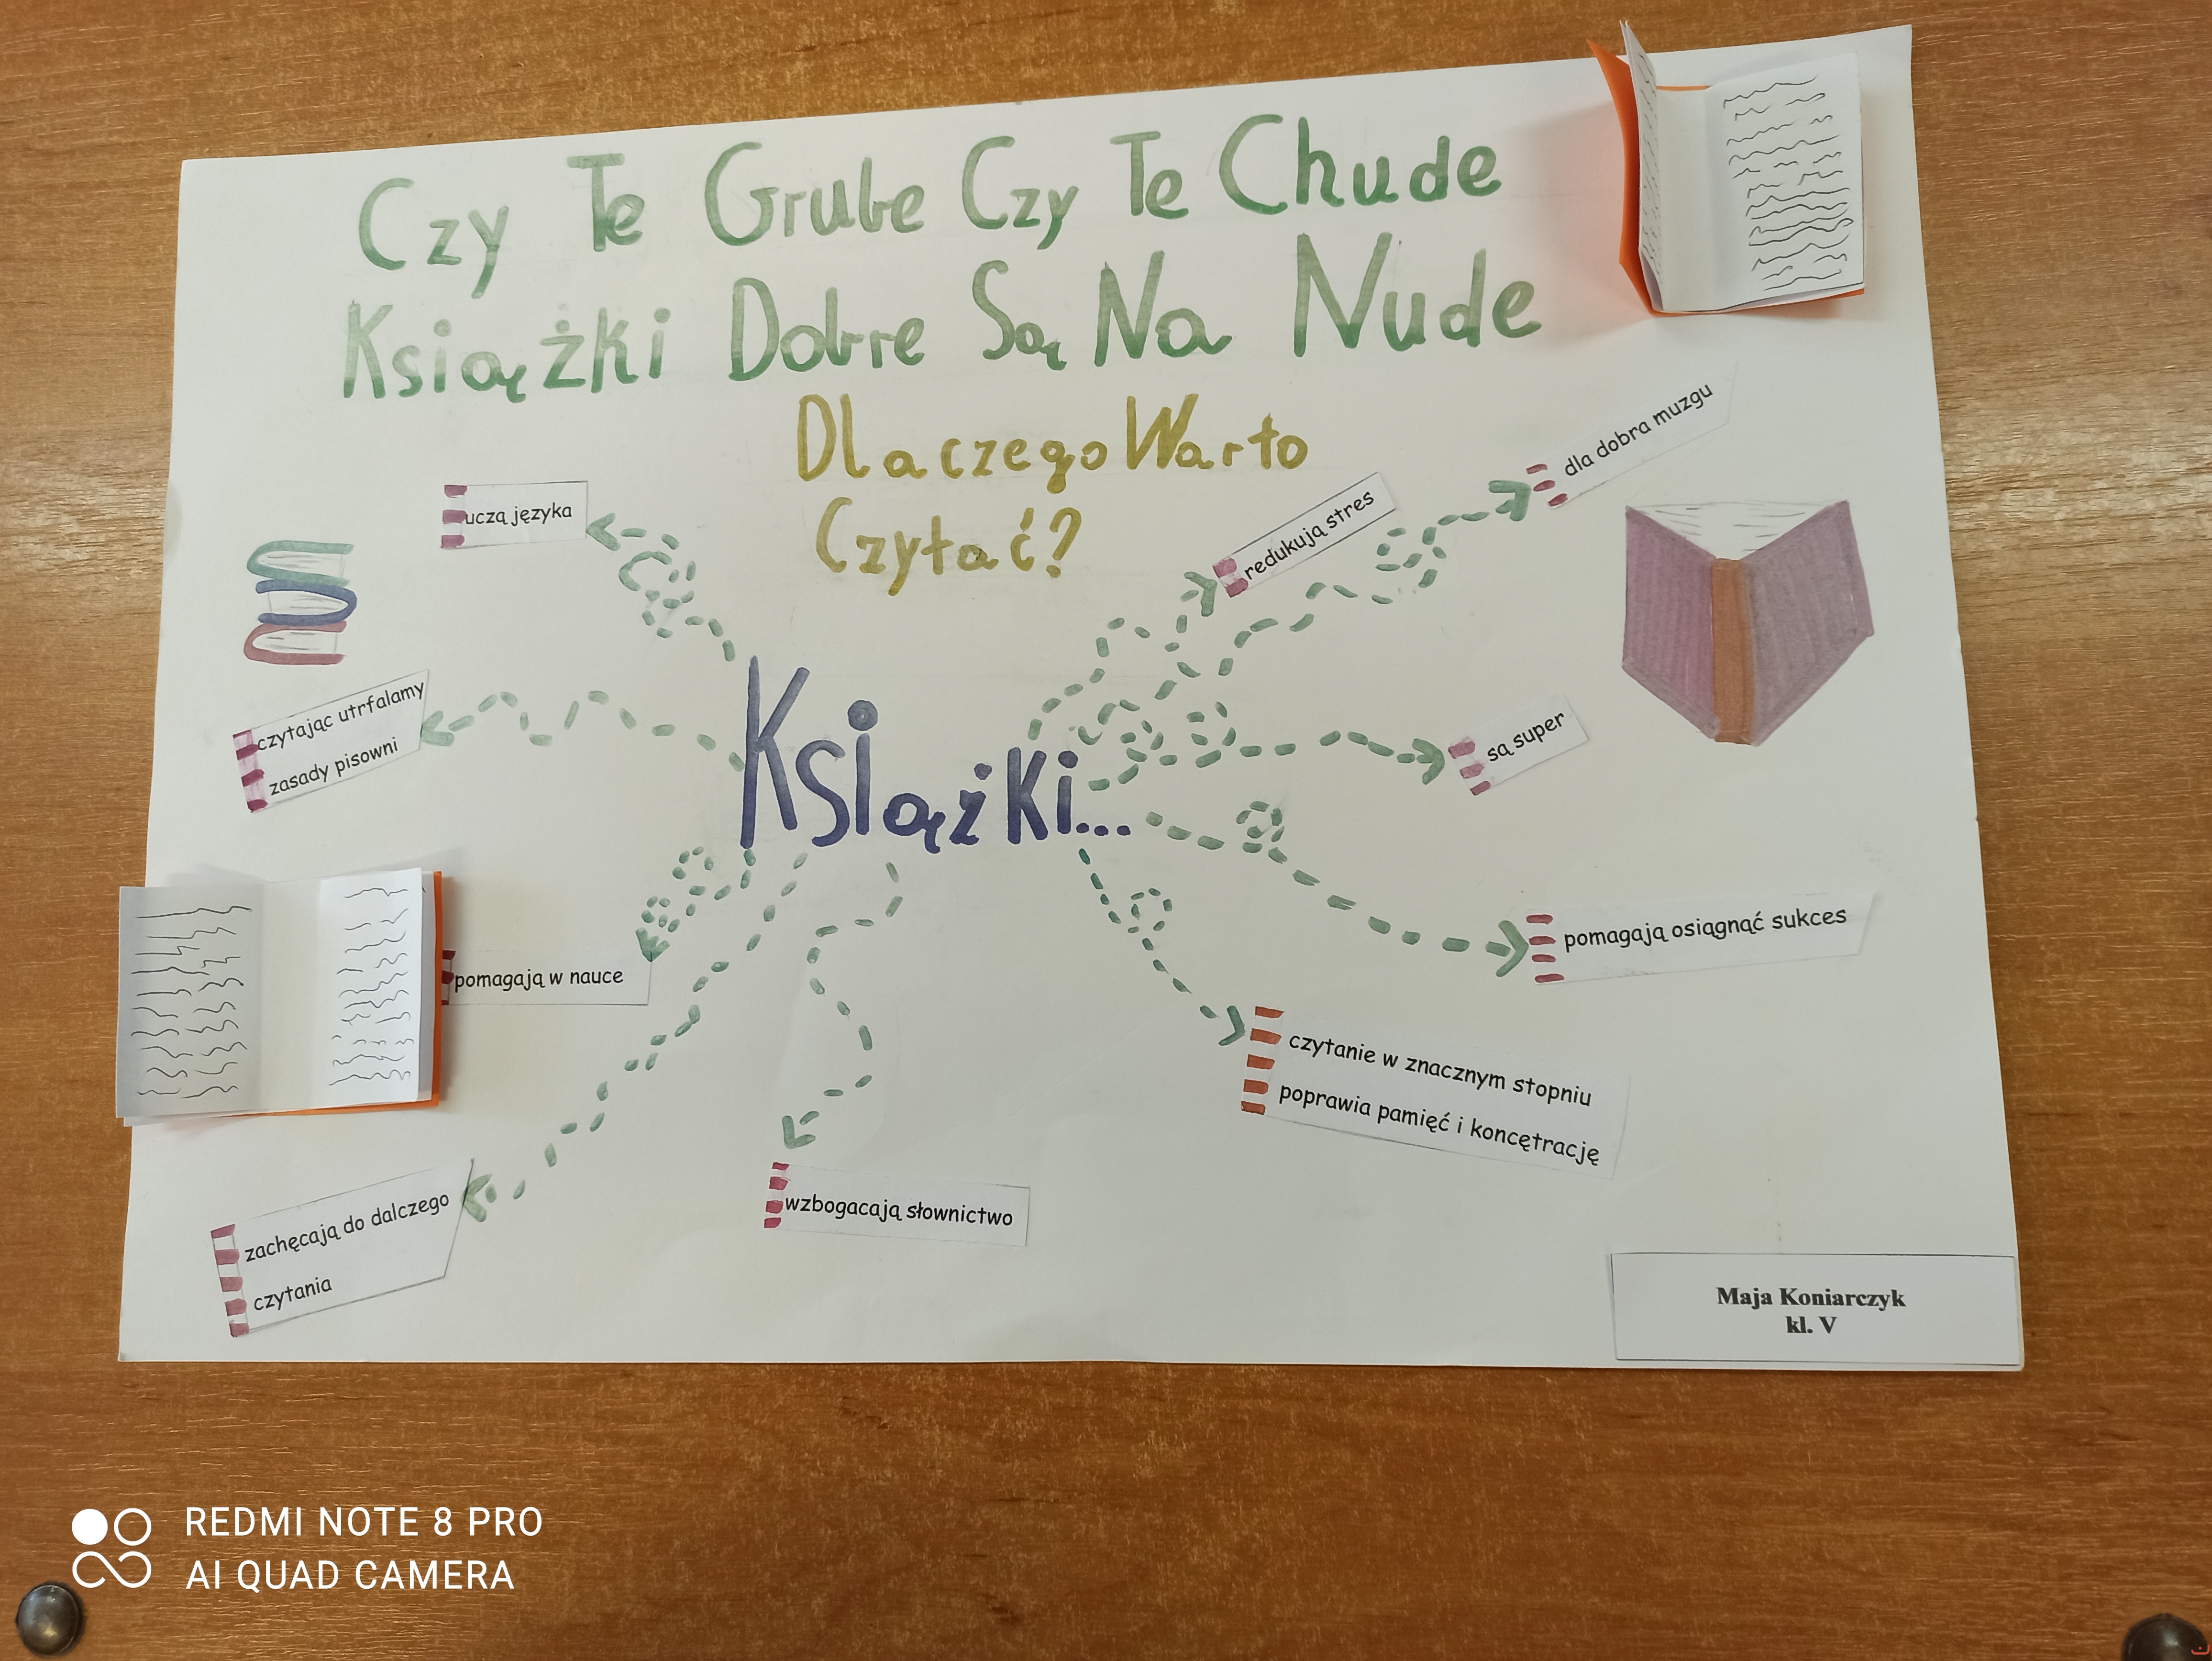 Czy Te Grube Czy Te Chude
Książki Dobre Są Na Nude
Dlaczego Warto
Czytać?
uczą języka
redukują stres
dla dobra muzgu
czytając utrfalamy
zasady pisowni
Książki...
są super
pomagają w nauce
pomagają osiągnąć sukces
czytanie w znacznym stopniu
poprawia pamięć i koncętrację
zachęcają do dalczego
czytania
wzbogacają słownictwo
Maja Koniarczyk
kl. V
REDMI NOTE 8 PRO
AI QUAD CAMERA